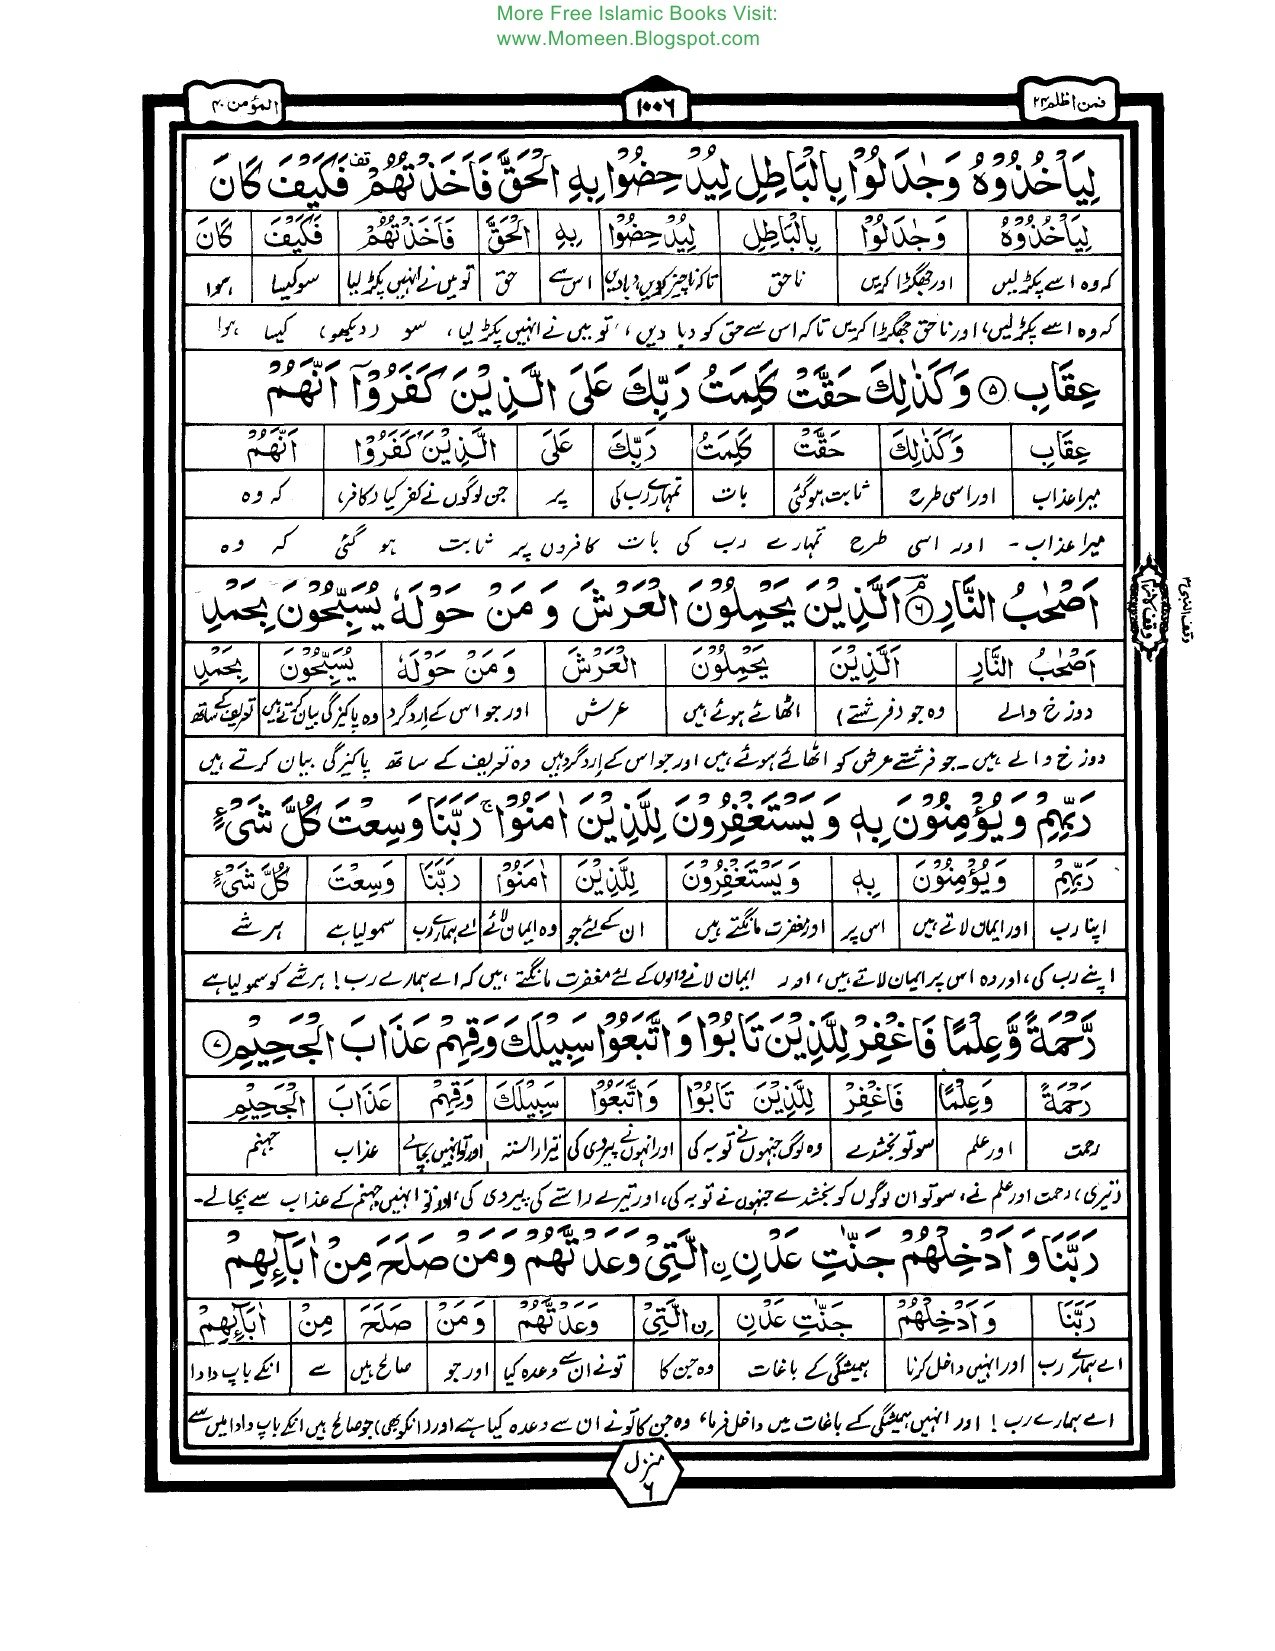 More Free Islamic Books Visit:
www.Momeen.Blogspot.com
فمن اظلم ۲۴ ۱۰۰۶ المؤمن ۴۰
لِيَاْخُذُوْهُ وَجٰدَلُوْا بِالْبَاطِلِ لِيُدْحِضُوْا بِهِ الْحَقَّ فَاَخَذْتُهُمْ ۫قف فَكَيْفَ كَانَ
لِيَاْخُذُوْهُ وَجٰدَلُوْا بِالْبَاطِلِ لِيُدْحِضُوْا بِهِ الْحَقَّ فَاَخَذْتُهُمْ فَكَيْفَ كَانَ
کہ وہ اسے پکڑ لیں اور جھگڑا کریں ناحق تاکہ ناچیز کر دیں، دبا دیں اس سے حق تو میں نے انہیں پکڑ لیا سو کیسا ہوا
کہ وہ اسے پکڑ لیں، اور ناحق جھگڑا کریں تاکہ اس سے حق کو دبا دیں، تو میں نے انہیں پکڑ لیا، سو (دیکھو) کیسا ہوا
عِقَابِ ۵ وَكَذٰلِكَ حَقَّتْ كَلِمَتُ رَبِّكَ عَلَى الَّذِيْنَ كَفَرُوْٓا اَنَّهُمْ
عِقَابِ وَكَذٰلِكَ حَقَّتْ كَلِمَتُ رَبِّكَ عَلَى الَّذِيْنَ كَفَرُوْٓا اَنَّهُمْ
میرا عذاب اور اسی طرح ثابت ہوگئی بات تمہارے رب کی پر جن لوگوں نے کفر کیا (کافر) کہ وہ
میرا عذاب۔ اور اسی طرح تمہارے رب کی بات کافروں پر ثابت ہو گئی کہ وہ
اَصْحٰبُ النَّارِ ۶ م اَلَّذِيْنَ يَحْمِلُوْنَ الْعَرْشَ وَمَنْ حَوْلَهٗ يُسَبِّحُوْنَ بِحَمْدِ
وقف النبی ﷺ
اَصْحٰبُ النَّارِ اَلَّذِيْنَ يَحْمِلُوْنَ الْعَرْشَ وَمَنْ حَوْلَهٗ يُسَبِّحُوْنَ بِحَمْدِ
دوزخ والے وہ جو (فرشتے) اٹھائے ہوئے ہیں عرش اور جو اس کے ارد گرد وہ پاکیزگی بیان کرتے ہیں تعریف کے ساتھ
دوزخ والے ہیں۔ جو فرشتے عرش کو اٹھائے ہوئے ہیں اور جو اس کے ارد گرد ہیں وہ تعریف کے ساتھ پاکیزگی بیان کرتے ہیں
رَبِّهِمْ وَيُؤْمِنُوْنَ بِهٖ وَيَسْتَغْفِرُوْنَ لِلَّذِيْنَ اٰمَنُوْا ۚ رَبَّنَا وَسِعْتَ كُلَّ شَيْءٍ
رَبِّهِمْ وَيُؤْمِنُوْنَ بِهٖ وَيَسْتَغْفِرُوْنَ لِلَّذِيْنَ اٰمَنُوْا رَبَّنَا وَسِعْتَ كُلَّ شَيْءٍ
اپنا رب اور ایمان لاتے ہیں اس پر اور مغفرت مانگتے ہیں ان کے لئے جو وہ ایمان لائے اے ہمارے رب سمولیا ہے ہر شے
اپنے رب کی، اور وہ اس پر ایمان لاتے ہیں، اور ایمان لانے والوں کے لئے مغفرت مانگتے ہیں کہ اے ہمارے رب! ہر شے کو سمولیا ہے
رَّحْمَةً وَّعِلْمًا فَاغْفِرْ لِلَّذِيْنَ تَابُوْا وَاتَّبَعُوْا سَبِيْلَكَ وَقِهِمْ عَذَابَ الْجَحِيْمِ ۷
رَحْمَةً وَّعِلْمًا فَاغْفِرْ لِلَّذِيْنَ تَابُوْا وَاتَّبَعُوْا سَبِيْلَكَ وَقِهِمْ عَذَابَ الْجَحِيْمِ
رحمت اور علم سو تو بخشدے وہ لوگ جنہوں نے توبہ کی اور انہوں نے پیروی کی تیرا راستہ اور تو انہیں بچالے عذاب جہنم
(تیری) رحمت اور علم نے، سو تو ان لوگوں کو بخشدے جنہوں نے توبہ کی، اور تیرے راستے کی پیروی کی، اور تو انہیں جہنم کے عذاب سے بچالے۔
رَبَّنَا وَاَدْخِلْهُمْ جَنّٰتِ عَدْنِ ِۨالَّتِيْ وَعَدْتَّهُمْ وَمَنْ صَلَحَ مِنْ اٰبَآئِهِمْ
رَبَّنَا وَاَدْخِلْهُمْ جَنّٰتِ عَدْنِ ِۨالَّتِيْ وَعَدْتَّهُمْ وَمَنْ صَلَحَ مِنْ اٰبَآئِهِمْ
اے ہمارے رب اور انہیں داخل کرنا ہمیشگی کے باغات وہ جن کا تونے ان سے وعدہ کیا اور جو صالح ہیں سے انکے باپ دادا
اے ہمارے رب! اور انہیں ہمیشگی کے باغات میں داخل فرما، وہ جن کا تونے ان سے وعدہ کیا ہے اور (انکو بھی) جو صالح ہیں انکے باپ دادا میں سے
منزل ۶